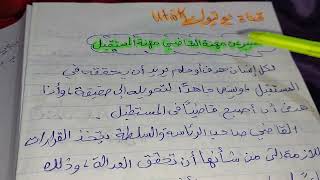 قناة يوتيوب Utok
تعبير عن مهنة القاضي مهنة المستقبل
لكل إنسان هدف أو حلم يريد أن يحققه في
المستقبل ويسعى جاهدًا لتحويله إلى حقيقة، وأنا
هدفي أن أصبح قاضيًا في المستقبل.
القاضي صاحب الرئاسة والسلطة يتخذ القرارات
اللازمة التي من شأنها أن تحقق العدالة، وذلك